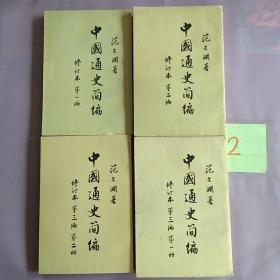 范文澜著
中國通史简编
修订本 第一编
范文澜著
中國通史简编
修订本 第二编
范文澜著
中國通史简编
修订本 第三编 第二册
范文澜著
中國通史简编
修订本 第三编 第一册
2